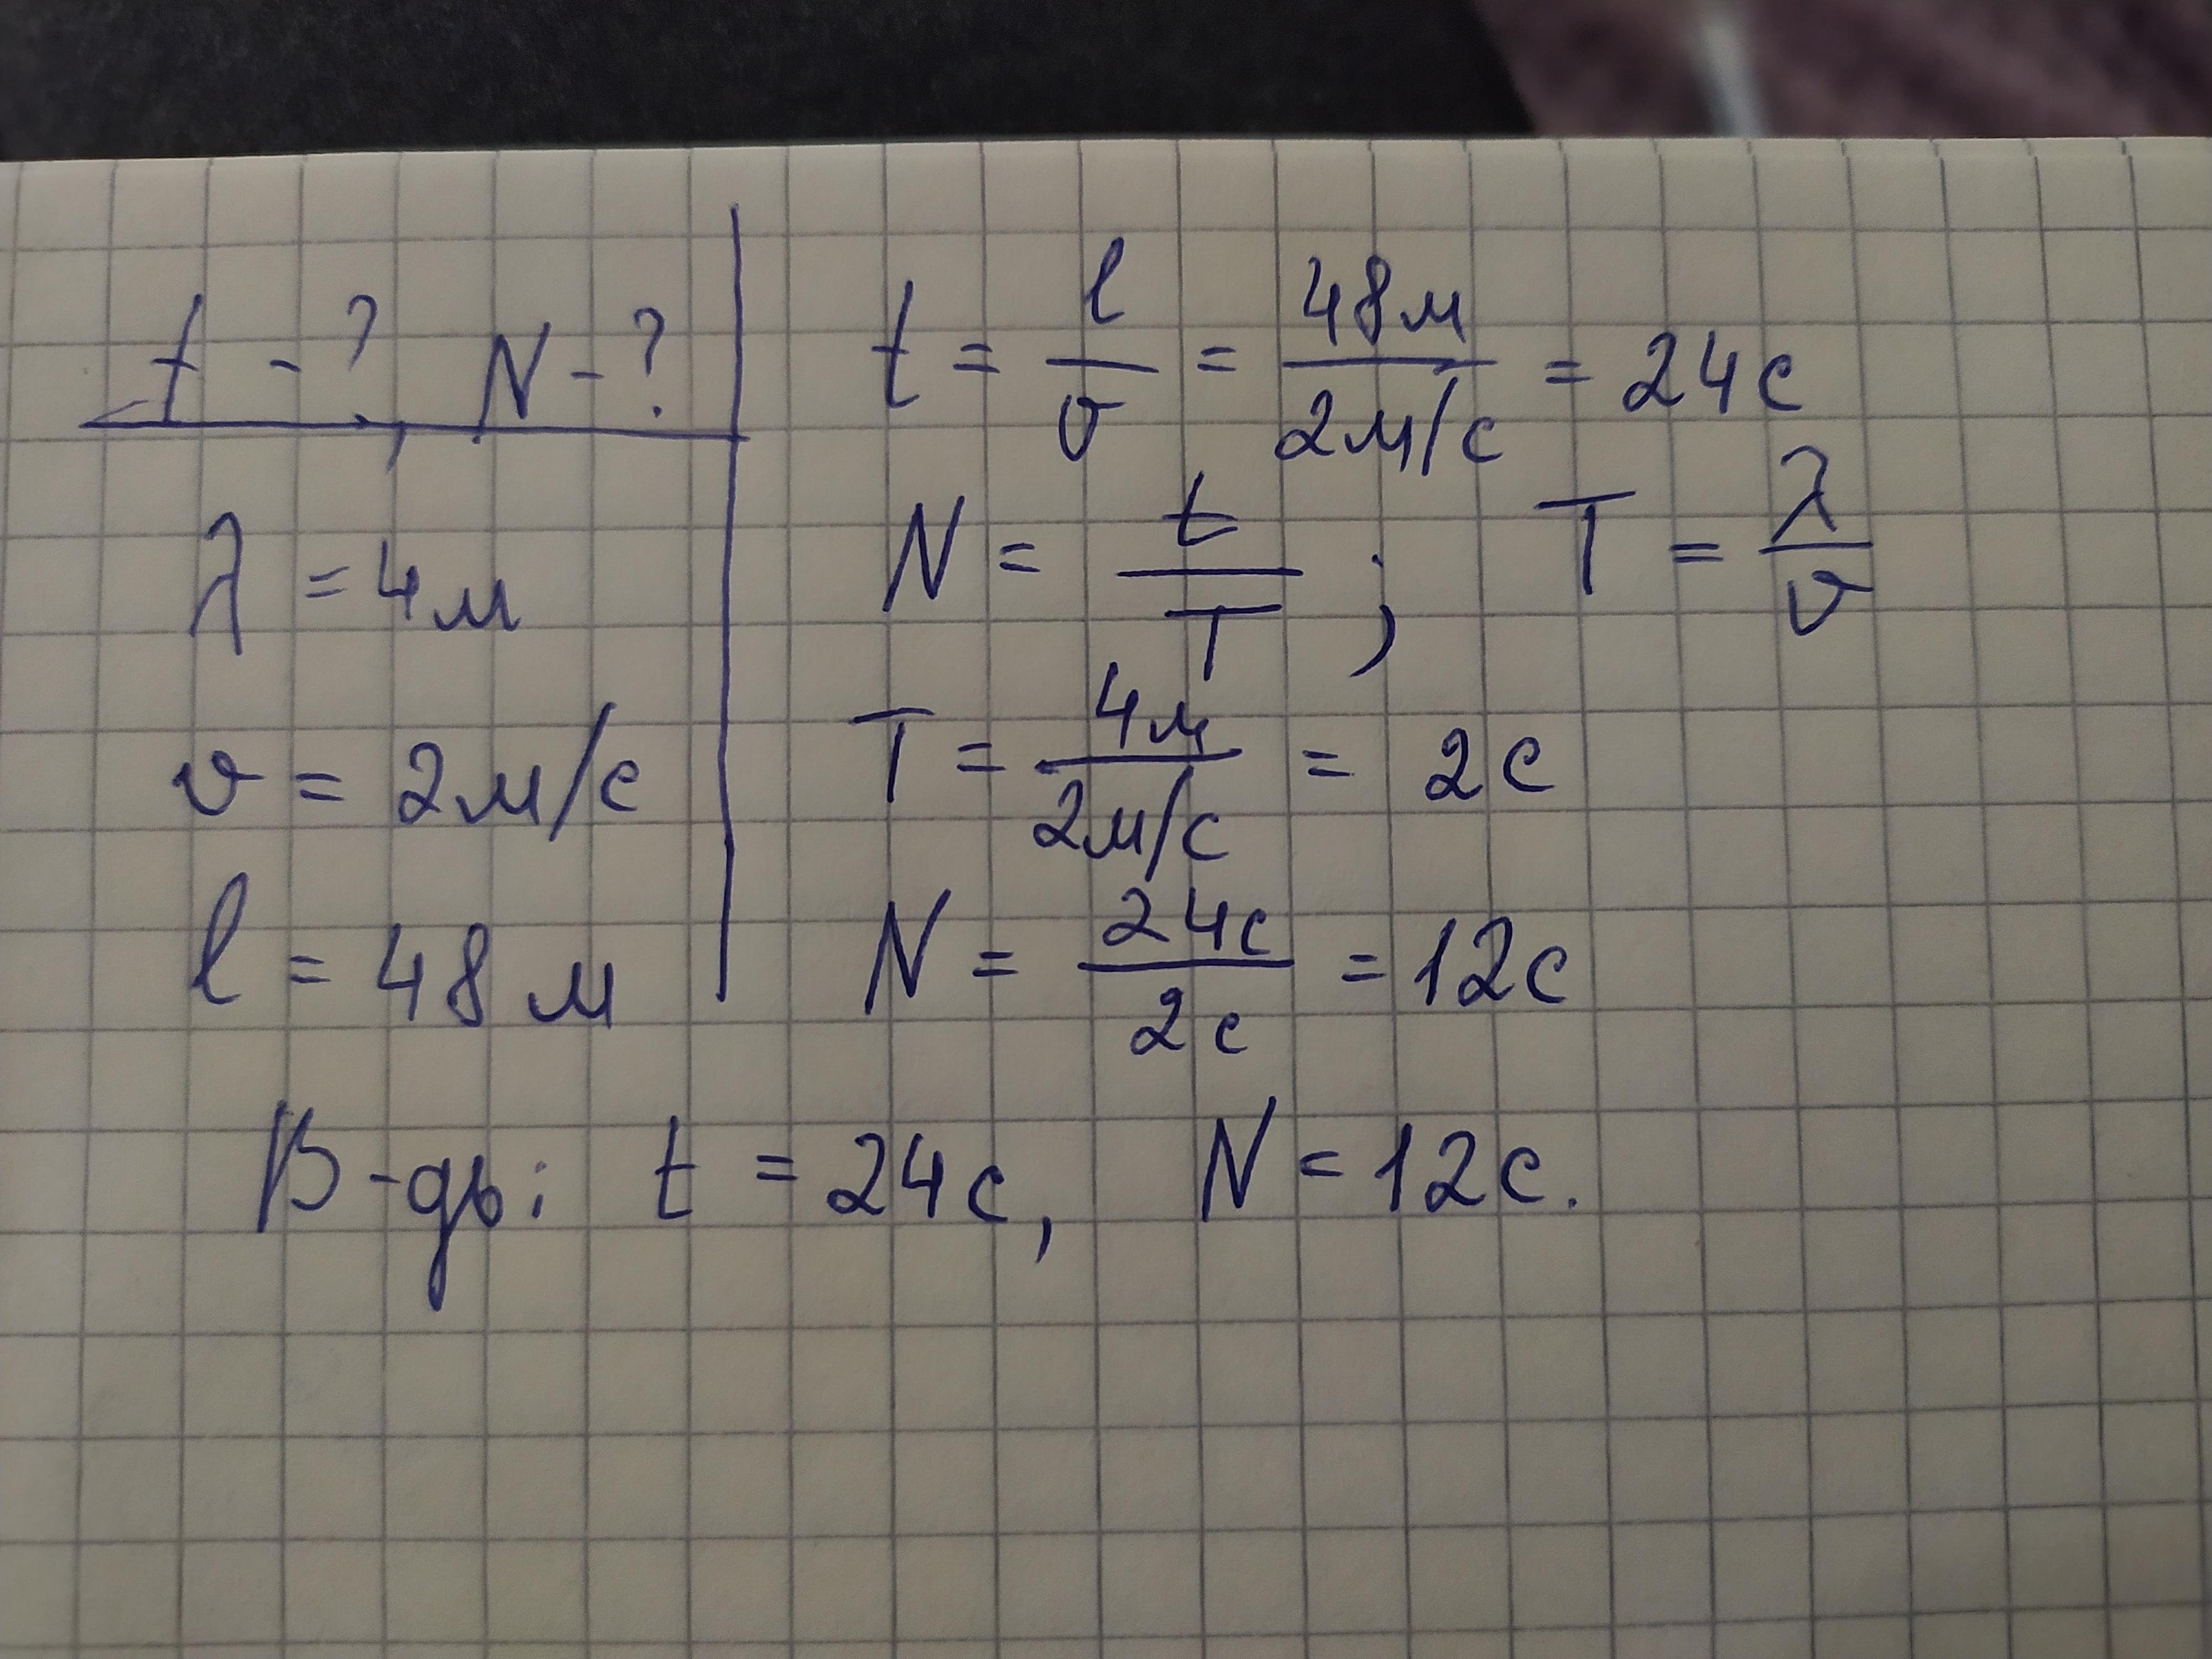 t - ?, N - ?
λ = 4м
v = 2м/с
l = 48 м
t = l/v = 48м/2м/с = 24с
N = t/T ; T = λ/v
T = 4м/2м/с = 2с
N = 24с/2с = 12с
В-дь: t = 24с, N = 12с.